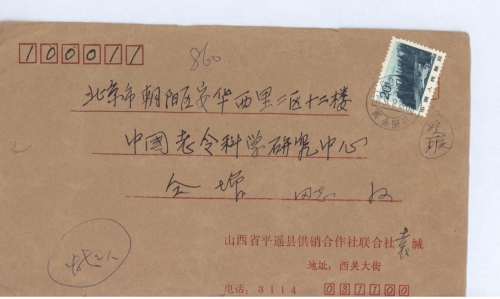 100011
860
北京市朝阳区安华西里二区十二楼
中国老令科学研究中心
仝 同志 收
山西省平遥县供销合作社联合社袁缄
地址:西关大街
电话:3114 031100